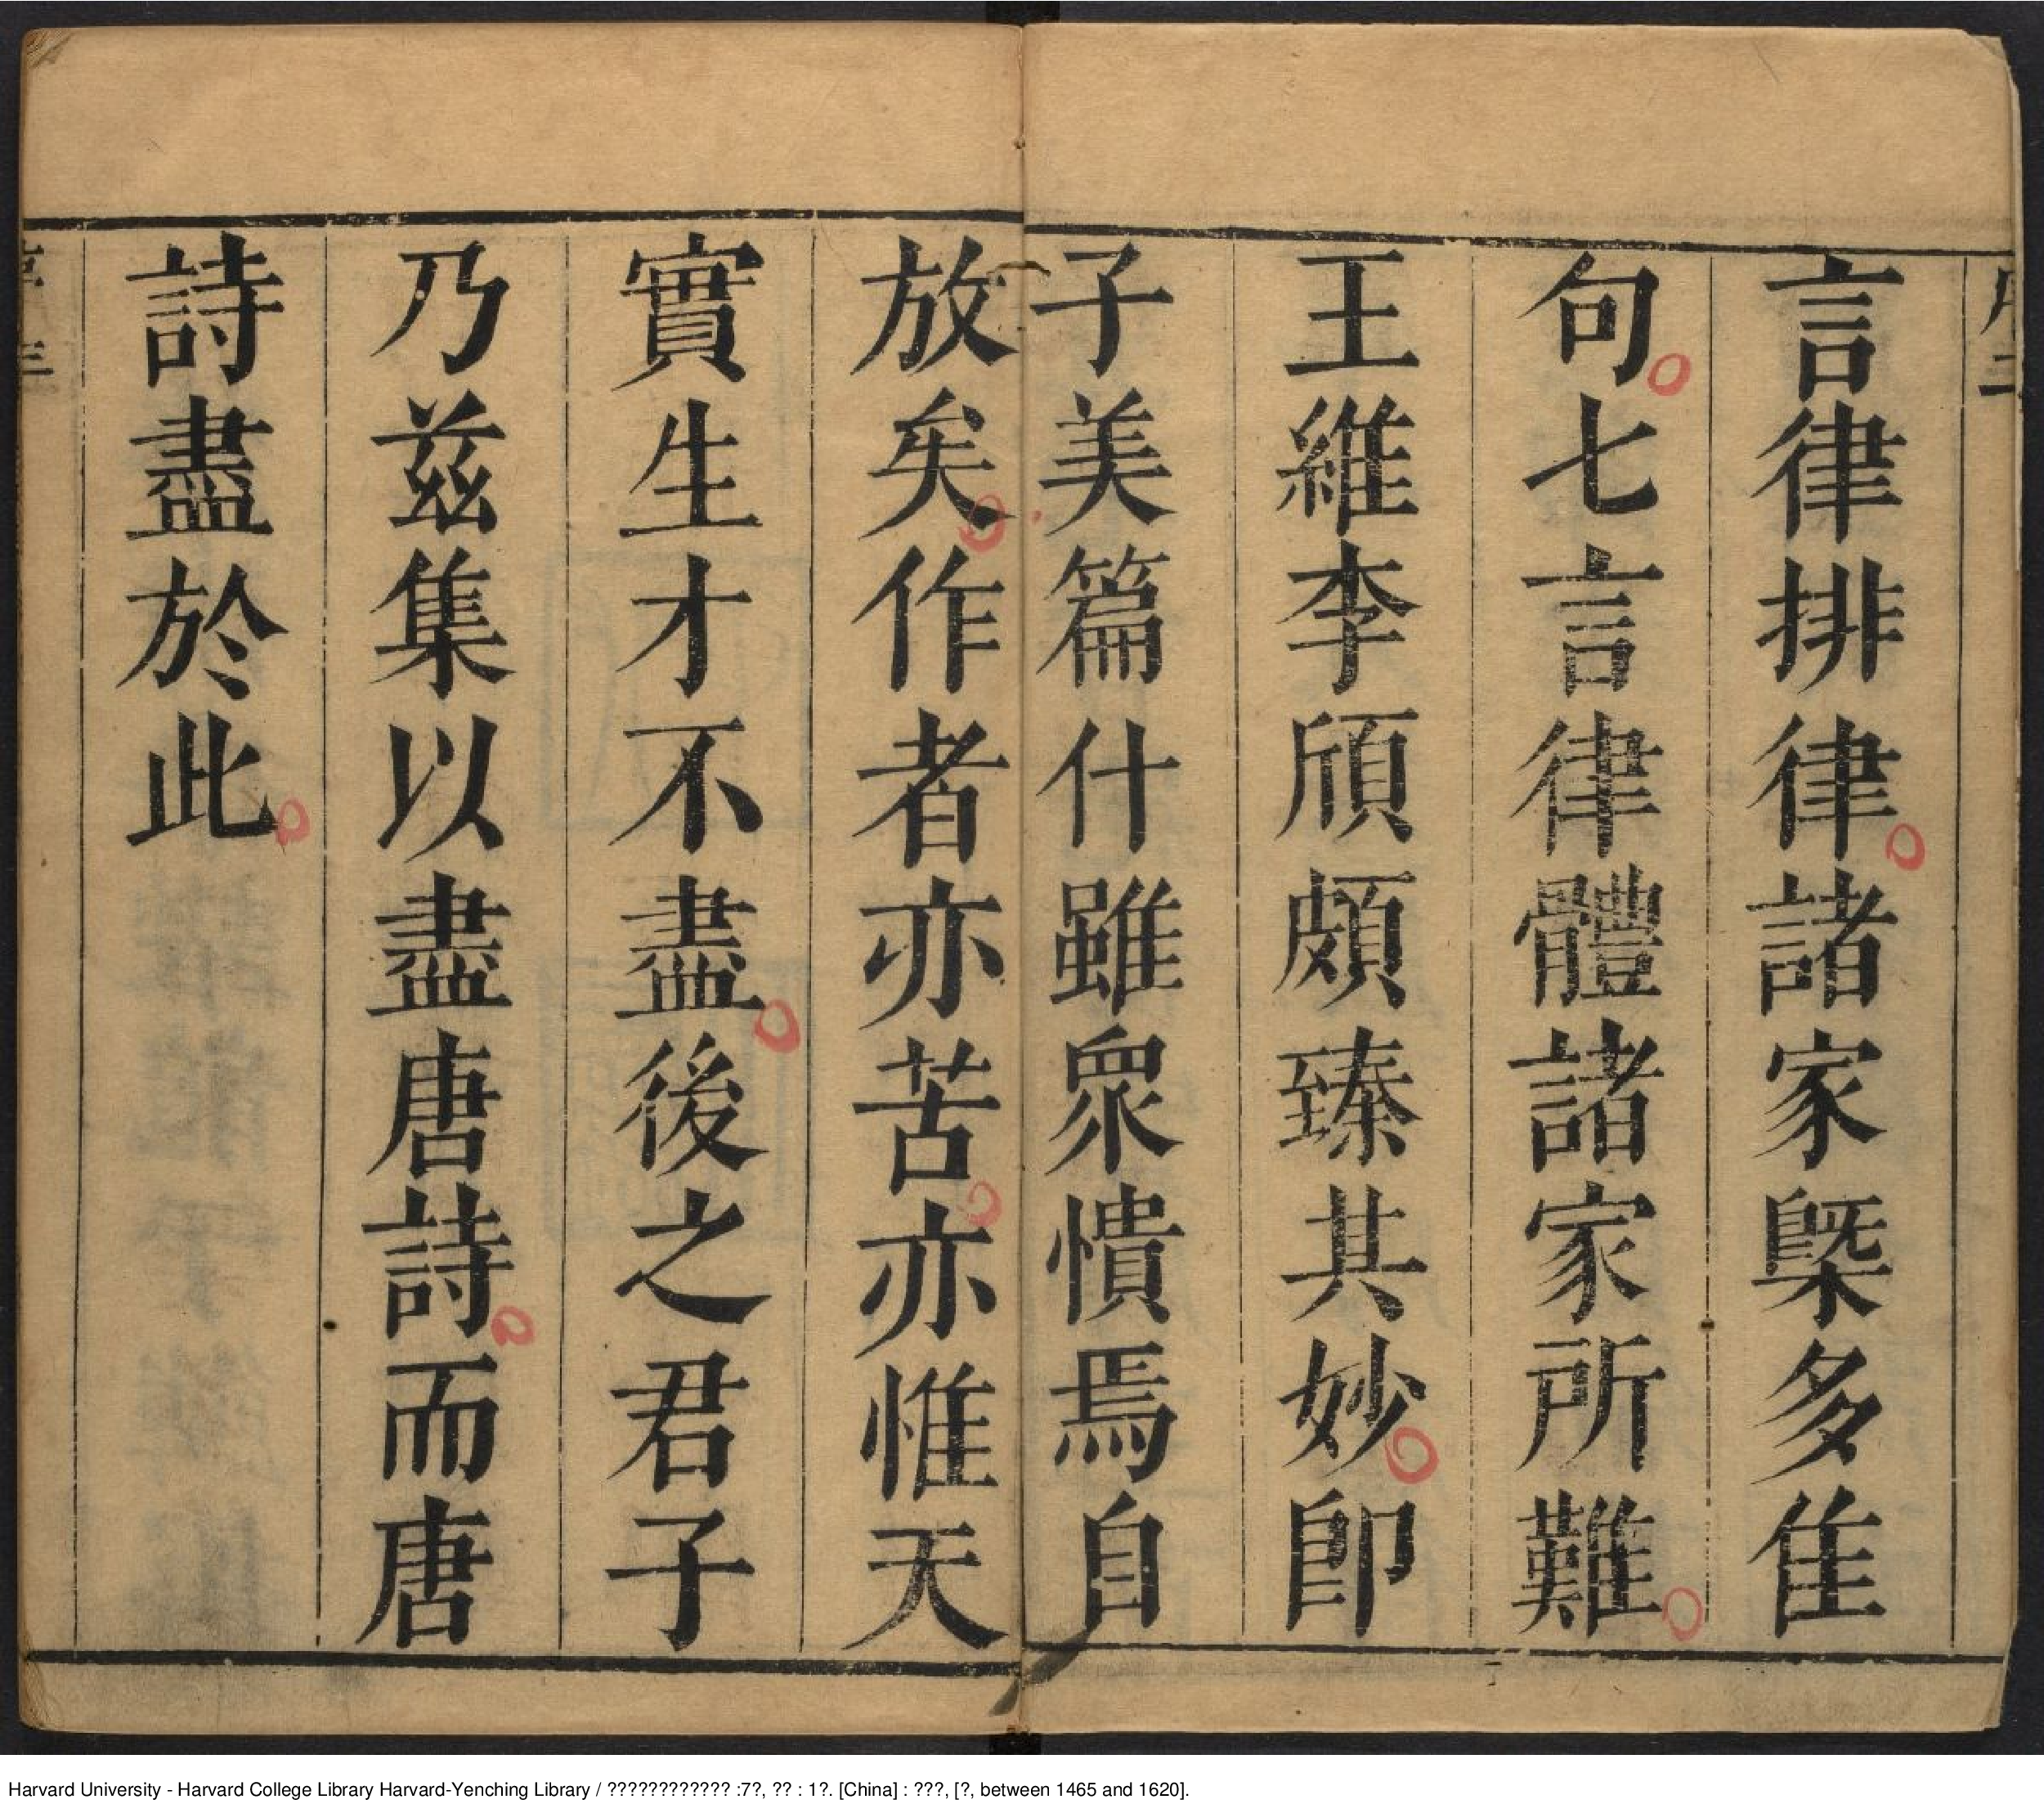 言律排律諸家槩多佳
句七言律體諸家所難
王維李頎頗臻其妙即
子美篇什雖衆憒焉自
放矣作者亦苦亦惟天
實生才不盡後之君子
乃茲集以盡唐詩而唐
詩盡於此
Harvard University - Harvard College Library Harvard-Yenching Library / ???????????? :7?, ?? : 1?. [China] : ???, [?, between 1465 and 1620].